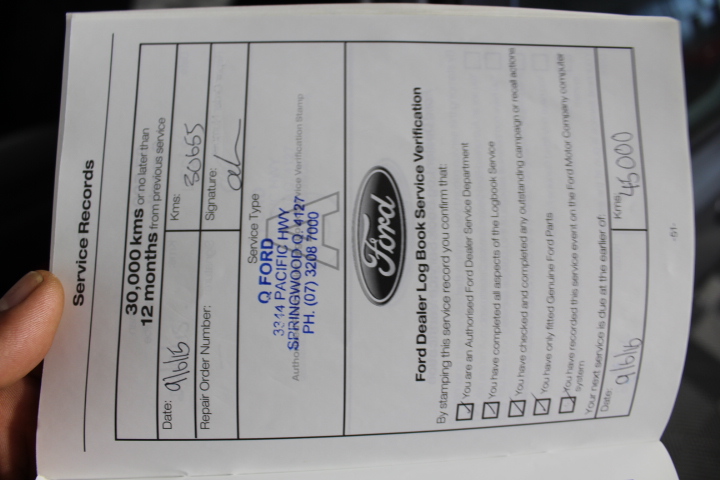 Service Records
30,000 kms or no later than
12 months from previous service
Date: 9/6/15 Kms: 30655
Repair Order Number: Signature:
Service Type
A
Q FORD
3314 PACIFIC HWY
SPRINGWOOD Q. 4127
PH. (07) 3208 7000
Service Verification Stamp
Ford
Ford Dealer Log Book Service Verification
By stamping this service record you confirm that:
You are an Authorised Ford Dealer Service Department
You have completed all aspects of the Logbook Service
You have checked and completed any outstanding campaign or recall actions
You have only fitted Genuine Ford Parts
You have recorded this service event on the Ford Motor Company computer
system
Your next service is due at the earlier of:
Date: 9/6/16 Kms: 45000
-51-